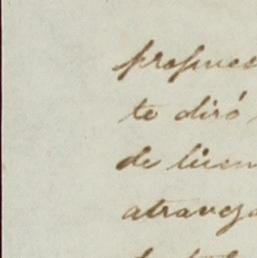 propues
te diró
de licen
atraveza